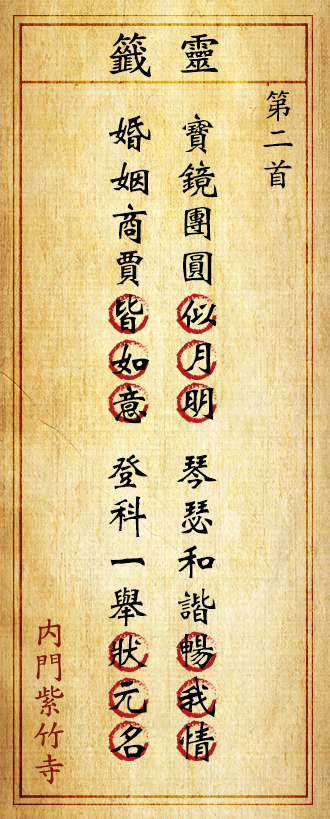 靈籤
第二首
寶鏡團圓似月明
琴瑟和諧暢我情
婚姻商賈皆如意
登科一舉狀元名
內門紫竹寺